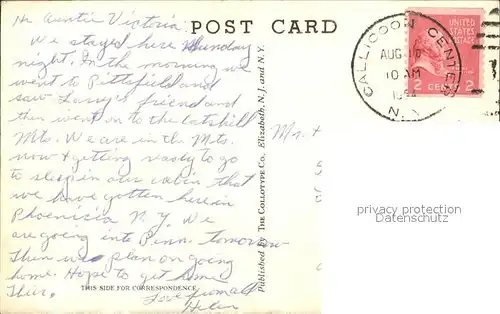 Hi Auntie Victoria
POST CARD
We stayed here Sunday
night. In the morning we
went to Pittsfield and
saw Larry's friend and
then went on to the Catskill
Mts. We are in the Mts.
now & getting ready to go
to sleep in our cabin that
we have gotten here in
Phoenicia N.Y. We
are going into Penn. tomorrow
Then we plan on going
home. Hope to get some
Love from all
Helen
THIS SIDE FOR CORRESPONDENCE
Published by THE COLLOTYPE CO., Elizabeth, N. J. and N. Y.
CALLICOON CENTER
AUG
10 AM
N.Y.
UNITED STATES
POSTAGE
2 CENTS 2
Mr. &
privacy protection